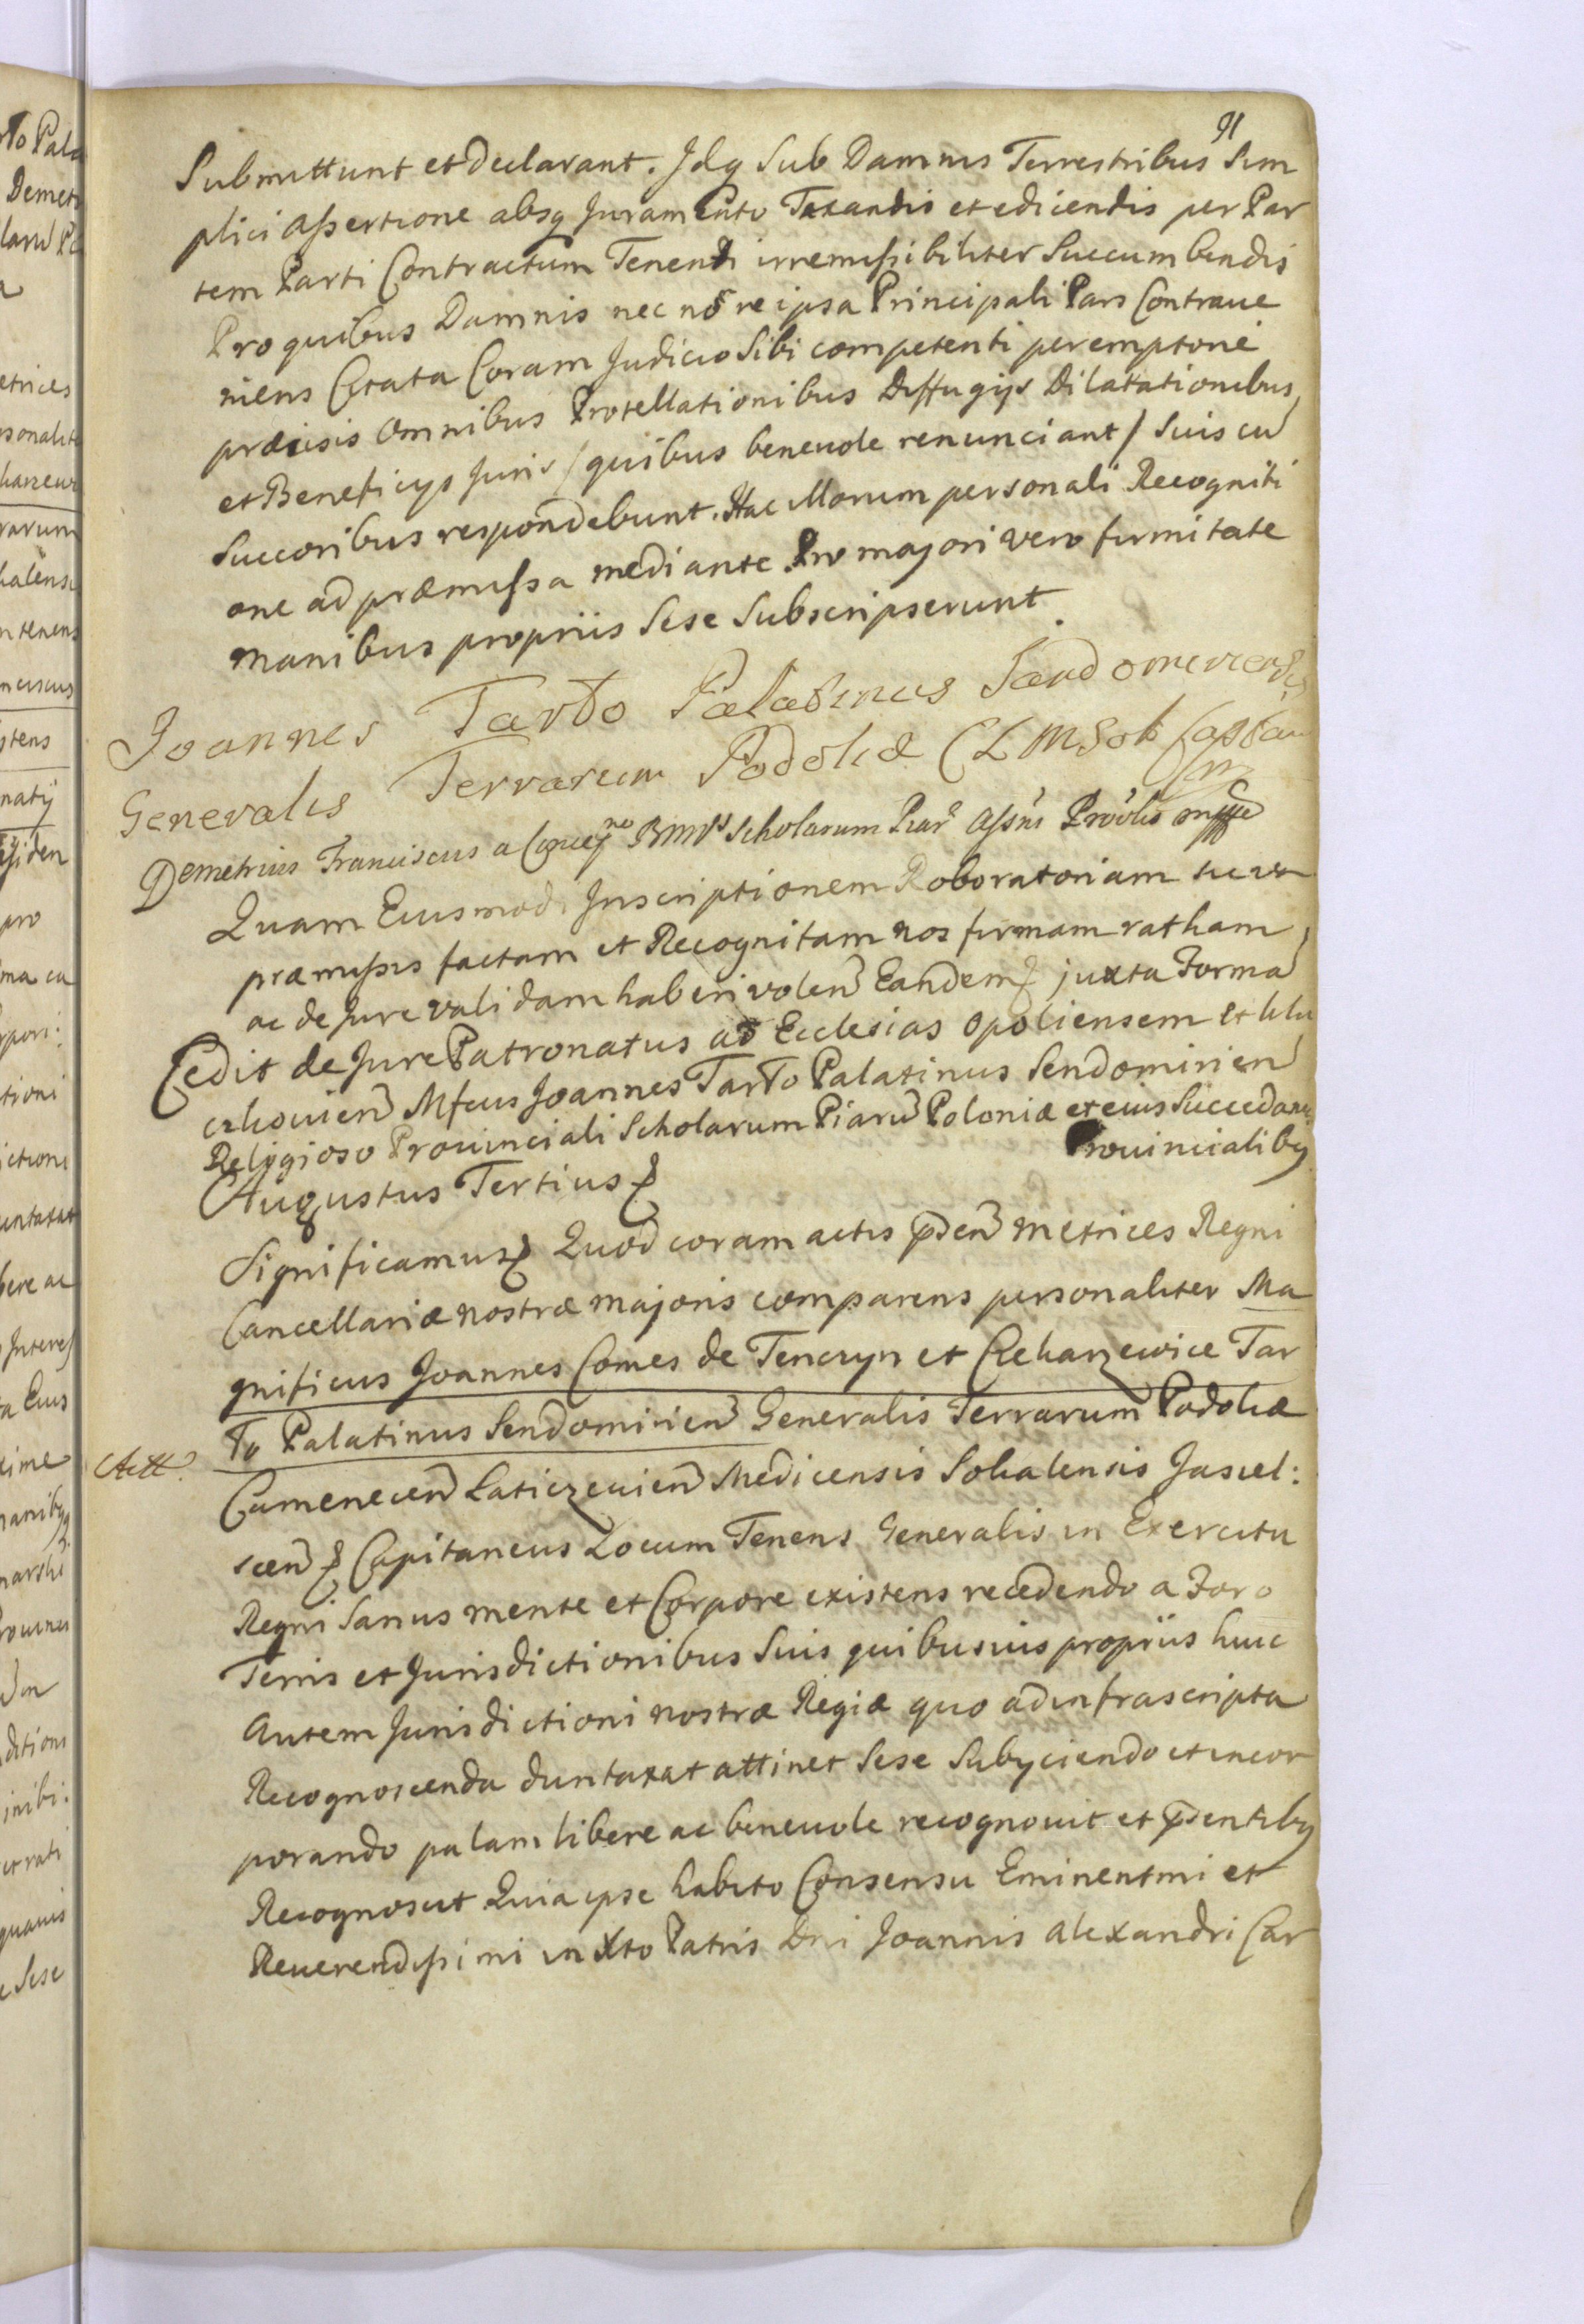 91
Submittunt et declarant. Jdq Sub Damnis Terrestribus Sim
plici Assertione absq Juramento Taxandis et edicendis per Par
tem Parti Contractum Tenenti irremissibiliter Succumbendis
Pro quibus Damnis nec nõ re ipsa Principali Pars Contraue
niens Citata Coram Judicio Sibi competenti peremptorie
præcisis omnibus Protellationibus Diffugijs Dilatationibus
et Beneficijs Juris / quibus beneuole renunciant / Suis cũ
Succoribus respondebunt. Hac illorum personali Recogniti
one ad præmissa mediante Pro majori vero firmitate
manibus propriis Sese Subscripserunt.
Joannes Tarło Palatinus Sandomiriensis
Generalis Terrarum Podoliæ C L M Sok Capitan
mp
Demetrius Franciscus a Concepne BMVs Scholarum Piar Assñs Provlis mppr
Quam Eiusmodi Inscriptionem Roboratoriam ut
præmissis factam et Recognitam nos firmam ratham
ac de Jure validam haberi volen Eandem juxta Forma
Cedit de Jure Patronatus ad Ecclesias Opoliensem et
chouien Mfcus Joannes Tarło Palatinus Sendomirien
Religioso Prouinciali Scholarum Piarũ Poloniæ et eius Succedan
Prouincialibq
Augustus Tertius
Significamus Quod coram actis p̃sen Metrices Regni
Cancellariæ nostræ majoris comparens personaliter Ma
gnificus Joannes Comes de Tenczyn et Czekarzewice Tar
ło Palatinus Sendomirien Generalis Terrarum Podoliæ
Actt.
Camenecen Laticzeuien Medicensis Sokalensis Jasiel:
scen Capitaneus Locum Tenens Generalis in Exercitu
Regni Sanus mente et Corpore existens recedendo a Foro
Terris et Jurisdictionibus Suis quibusuis propriis huic
Autem Jurisdictioni nostræ Regiæ quo ad infrascripta
Recognoscenda duntaxat attinet Sese Subijciendo et incor
porando palam libere ac beneuole recognouit et p̃sentibq
Recognoscit Quia ipse habito Consensu Eminentmi et
Reuerendissimi in Xto Patris Dni Joannis Alexandri Car